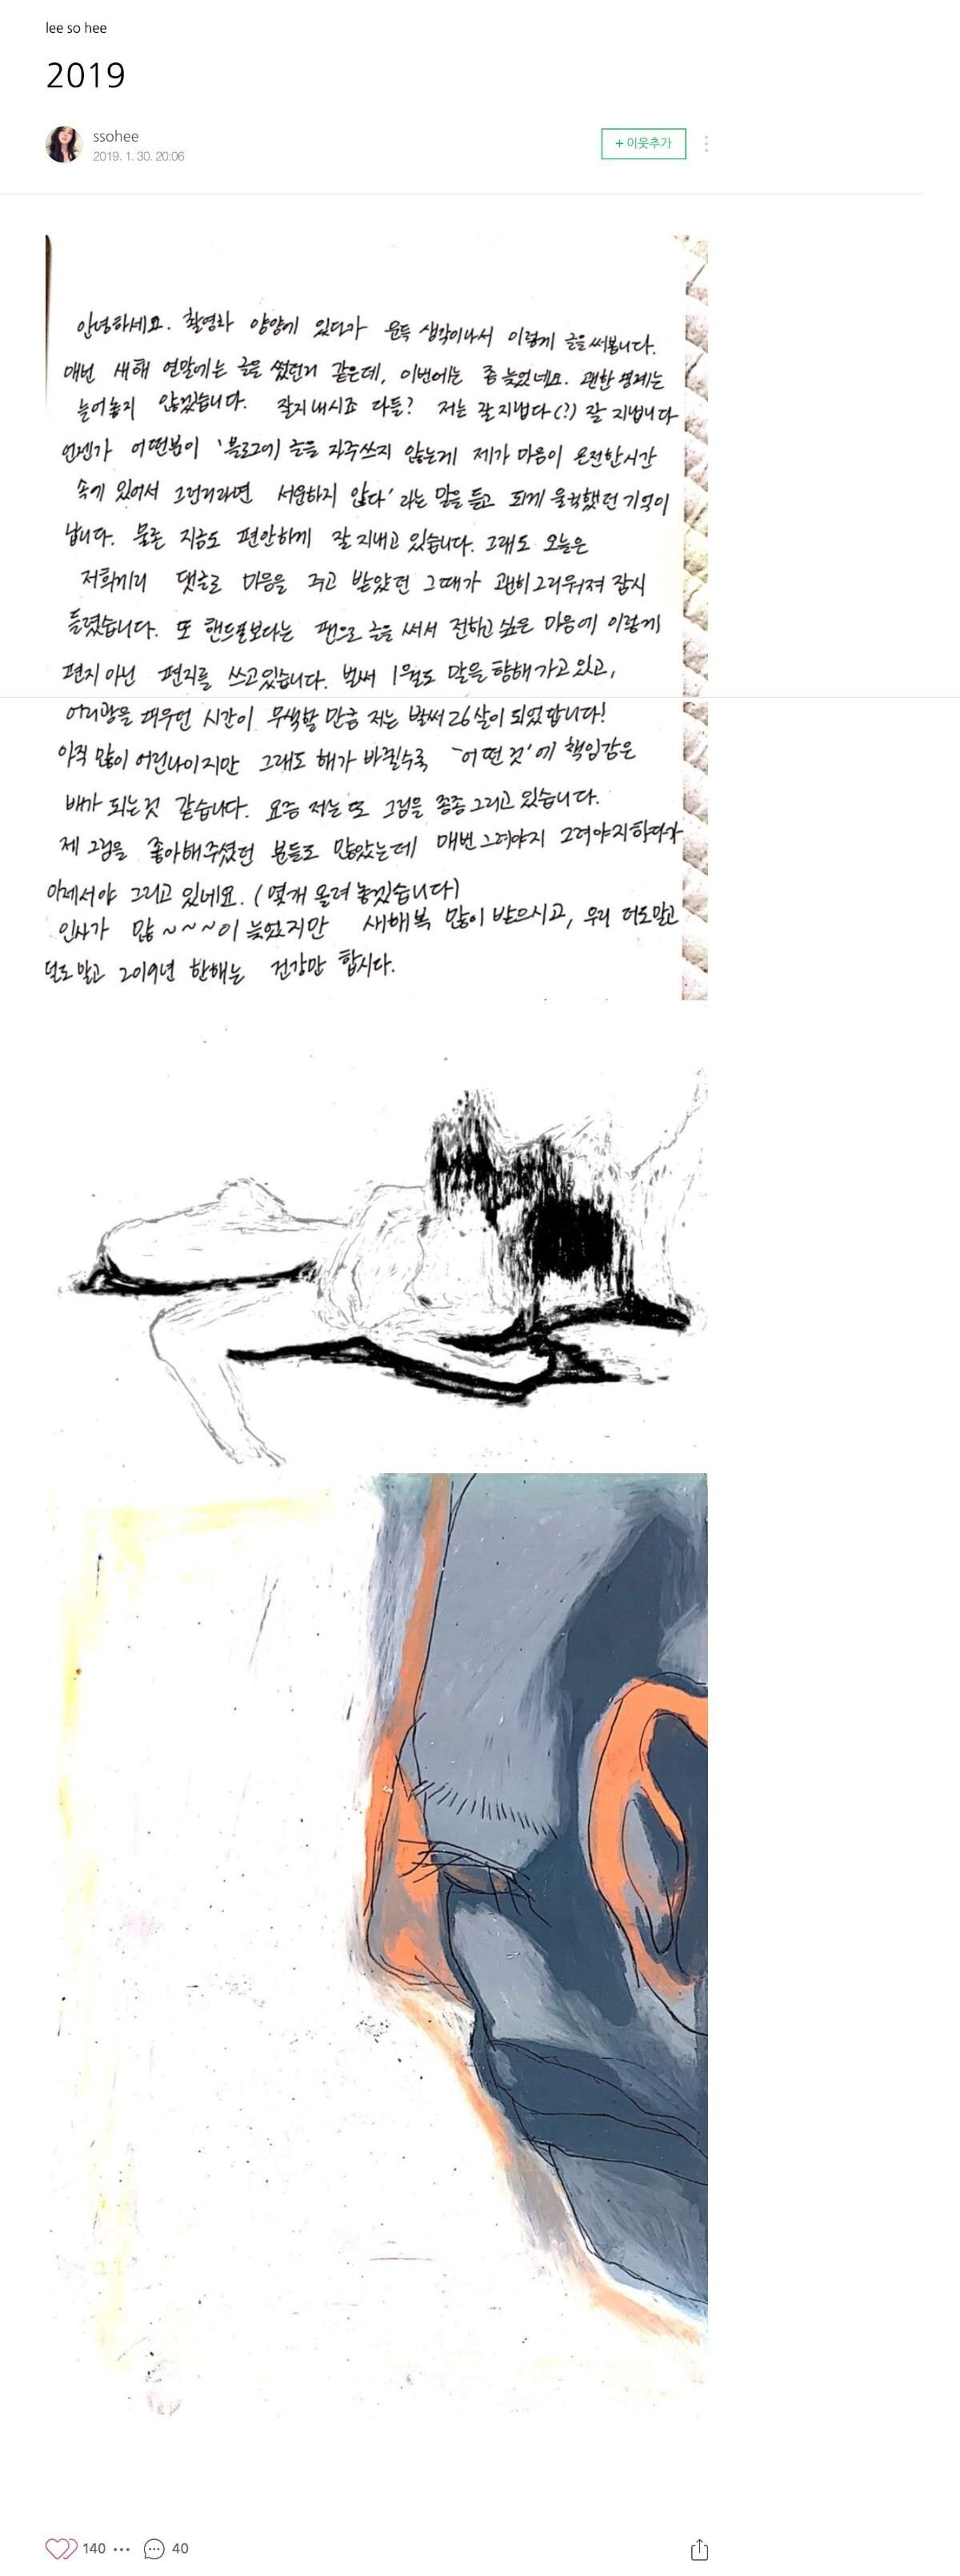 lee so hee
2019
ssohee
2019. 1. 30. 20:06
+ 이웃추가
안녕하세요. 촬영차 양양에 있다가 문득 생각이나서 이렇게 글을 써봅니다.
매번 새해 연말에는 글을 썼던거 같은데, 이번에는 좀 늦었네요. 괜한 변명는
늘어놓지 않겠습니다. 잘지내시죠 다들? 저는 잘 지냅다(?) 잘 지냅니다
언젠가 어떤분이 '블로그에 글을 자주쓰지 않는게 제가 마음이 온전한시간
속에 있어서 그런거라면 서운하지 않다' 라는 말을 듣고 되게 울컥했던 기억이
납니다. 물론 지금도 편안하게 잘 지내고 있습니다. 그래도 오늘은
저희끼리 댓글로 마음을 주고 받았던 그때가 괜히 그리워져 잠시
들렸습니다. 또 핸드폰보다는 펜으로 글을 써서 전하고 싶은 마음에 이렇게
편지 아닌 편지를 쓰고있습니다. 벌써 1월도 말을 향해 가고 있고,
어리광을 피우던 시간이 무색할 만큼 저는 벌써 26살이 되었답니다!
아직 많이 어린나이지만 그래도 해가 바뀔수록 '어떤 것'에 책임감은
배가 되는것 같습니다. 요즘 저는 또 그림을 종종 그리고 있습니다.
제 그림을 좋아해주셨던 분들도 많았는데 매번 그려야지 그려야지하다가
이제서야 그리고 있네요. (몇개 올려 놓겠습니다)
인사가 많~~~이 늦었지만 새해복 많이 받으시고, 우리 더도말고
덜도 말고 2019년 한해는 건강만 합시다.
140
40